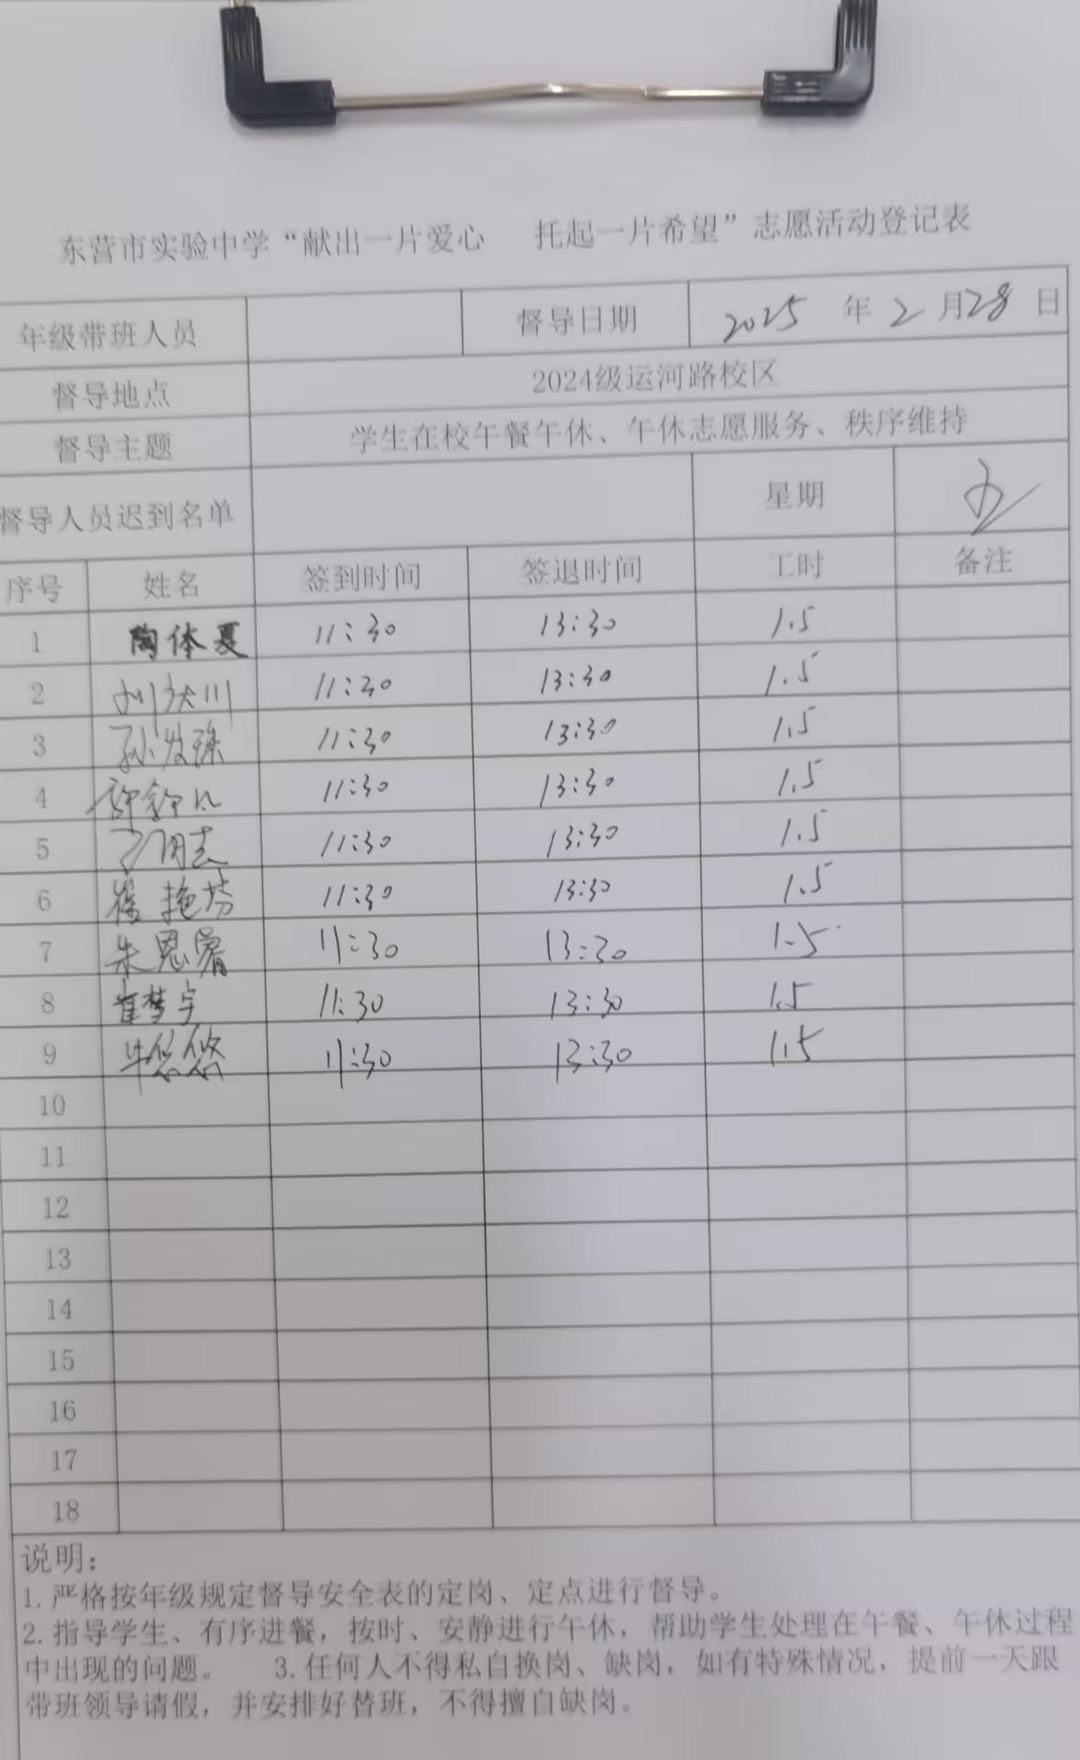 东营市实验中学“献出一片爱心 托起一片希望”志愿活动登记表
年级带班人员 督导日期 2025 年 2 月 28 日
督导地点 2024级运河路校区
督导主题 学生在校午餐午休、午休志愿服务、秩序维持
督导人员迟到名单 星期
序号 姓名 签到时间 签退时间 工时 备注
1 陶体夏 11:30 13:30 1.5
2 11:30 13:30 1.5
3 11:30 13:30 1.5
4 11:30 13:30 1.5
5 11:30 13:30 1.5
6 11:30 13:30 1.5
7 朱恩睿 11:30 13:30 1.5
8 崔梦宇 11:30 13:30 1.5
9 牛悠悠 11:30 13:30 1.5
10
11
12
13
14
15
16
17
18
说明：
1. 严格按年级规定督导安全表的定岗、定点进行督导。
2. 指导学生、有序进餐，按时、安静进行午休，帮助学生处理在午餐、午休过程
中出现的问题。 3. 任何人不得私自换岗、缺岗，如有特殊情况，提前一天跟
带班领导请假，并安排好替班，不得擅自缺岗。